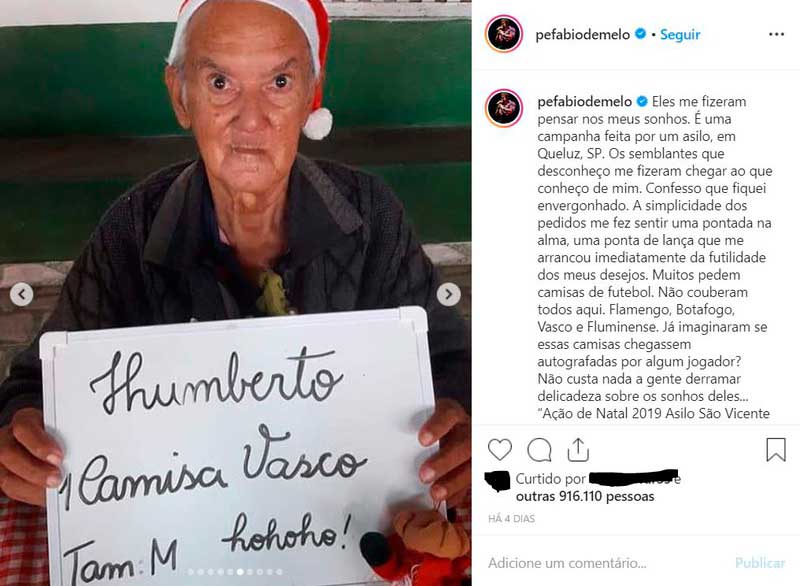 Jhumberto
1 Camisa Vasco
Tam: M hohoho!
pefabiodemelo • Seguir
pefabiodemelo Eles me fizeram
pensar nos meus sonhos. É uma
campanha feita por um asilo, em
Queluz, SP. Os semblantes que
desconheço me fizeram chegar ao que
conheço de mim. Confesso que fiquei
envergonhado. A simplicidade dos
pedidos me fez sentir uma pontada na
alma, uma ponta de lança que me
arrancou imediatamente da futilidade
dos meus desejos. Muitos pedem
camisas de futebol. Não couberam
todos aqui. Flamengo, Botafogo,
Vasco e Fluminense. Já imaginaram se
essas camisas chegassem
autografadas por algum jogador?
Não custa nada a gente derramar
delicadeza sobre os sonhos deles...
“Ação de Natal 2019 Asilo São Vicente
Curtido por e
outras 916.110 pessoas
HÁ 4 DIAS
Adicione um comentário... Publicar